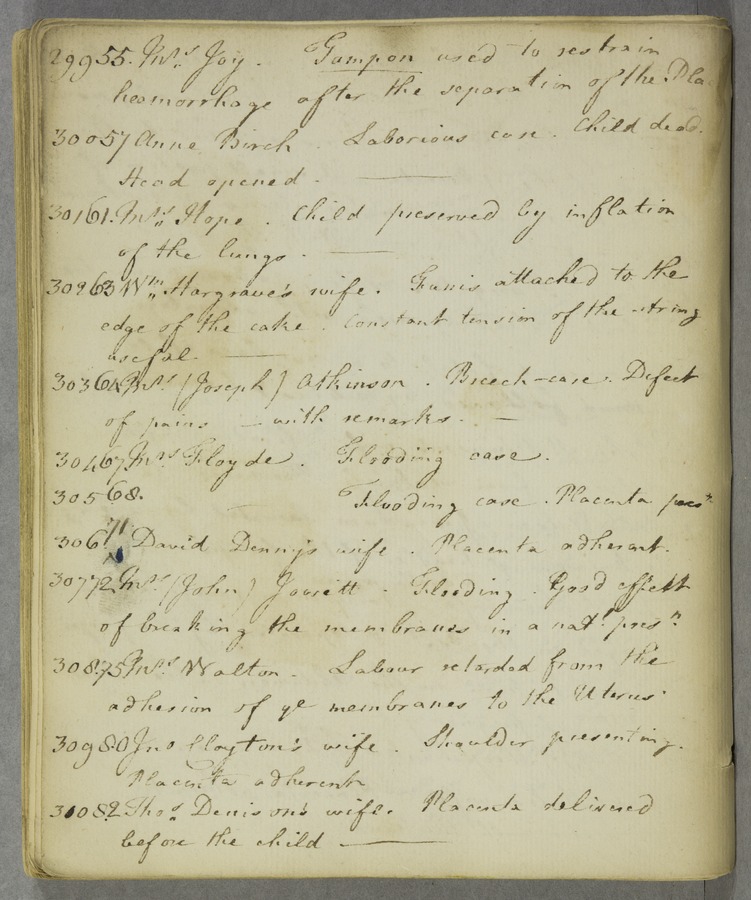 299 55. Mrs. Joy. Tampon used to restrain
heamorrhage after the separation of the Pla
300 57 Anne Birch. Laborious case. Child dead.
Head opened.
301 61. Mrs. Hope. Child preserved by inflation
of the lungs.
302 63 Wm. Hargrave's wife. Funis attached to the
edge of the cake. Constant tension of the string
useful.
303 64 Mrs. (Joseph) Atkinson. Breech-case. Defect
of pains — with remarks. —
304 67 Mrs. Floyde. Flooding case.
305 68. Flooding case. Placenta presn
306 71 David Denny's wife. Placenta adherent.
307 72 Mrs. (John) Jowitt. Flooding. Good effect
of breaking the membranes in a natl. presn.
308 75 Mrs. Walton. Labour retarded from the
adhesion of ye membranes to the Uterus
309 80 Jno Clayton's wife. Shoulder presenting.
Placenta adherent
310 82 Thos. Denison's wife. Placenta delivered
before the child —